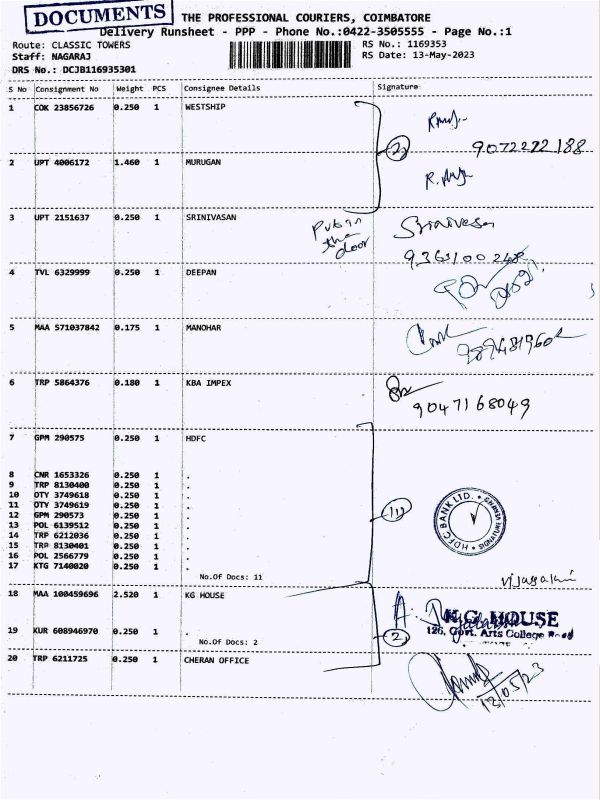 DOCUMENTS
THE PROFESSIONAL COURIERS, COIMBATORE
Delivery Runsheet - PPP - Phone No.:0422-3505555 - Page No.:1
Route: CLASSIC TOWERS
Staff: NAGARAJ
DRS No.: DCJB116935301
RS No.: 1169353
RS Date: 13-May-2023
S No Consignment No Weight PCS Consignee Details Signature
1 COK 23856726 0.250 1 WESTSHIP
9072222188
2 UPT 4006172 1.460 1 MURUGAN
2
3 UPT 2151637 0.250 1 SRINIVASAN
Put in
the
door
Srinivasan
4 TVL 6329999 0.250 1 DEEPAN
5 MAA 571037842 0.175 1 MANOHAR
6 TRP 5864376 0.180 1 KBA IMPEX
9047168049
7 GPM 290575 0.250 1 HDFC
8 CNR 1653326 0.250 1 .
9 TRP 8130400 0.250 1 .
10 OTY 3749618 0.250 1 .
11 OTY 3749619 0.250 1 .
12 GPM 290573 0.250 1 .
13 POL 6139512 0.250 1 .
14 TRP 6212036 0.250 1 .
15 TRP 8130401 0.250 1 .
16 POL 2566779 0.250 1 .
17 KTG 7140020 0.250 1 .
No.Of Docs: 11
11
HDFC BANK LTD.
SIGNATURE
18 MAA 100459696 2.520 1 KG HOUSE
K.G. HOUSE
126, Govt. Arts College Road
19 KUR 608946970 0.250 1 .
No.Of Docs: 2
2
20 TRP 6211725 0.250 1 CHERAN OFFICE
13/05/23